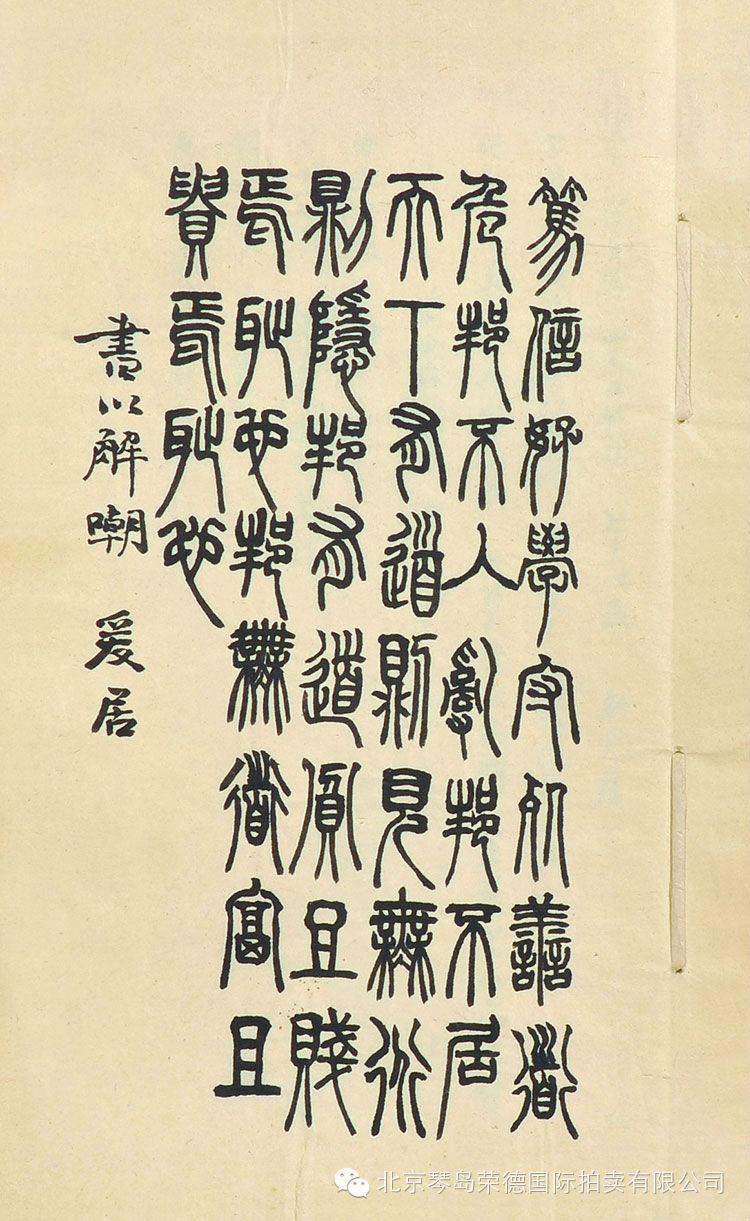 篤信好學守死善道
危邦不入亂邦不居
天下有道則見無道
則隱邦有道貧且賤
焉恥也邦無道富且
貴焉恥也
書以解嘲 爰居
北京琴岛荣德国际拍卖有限公司